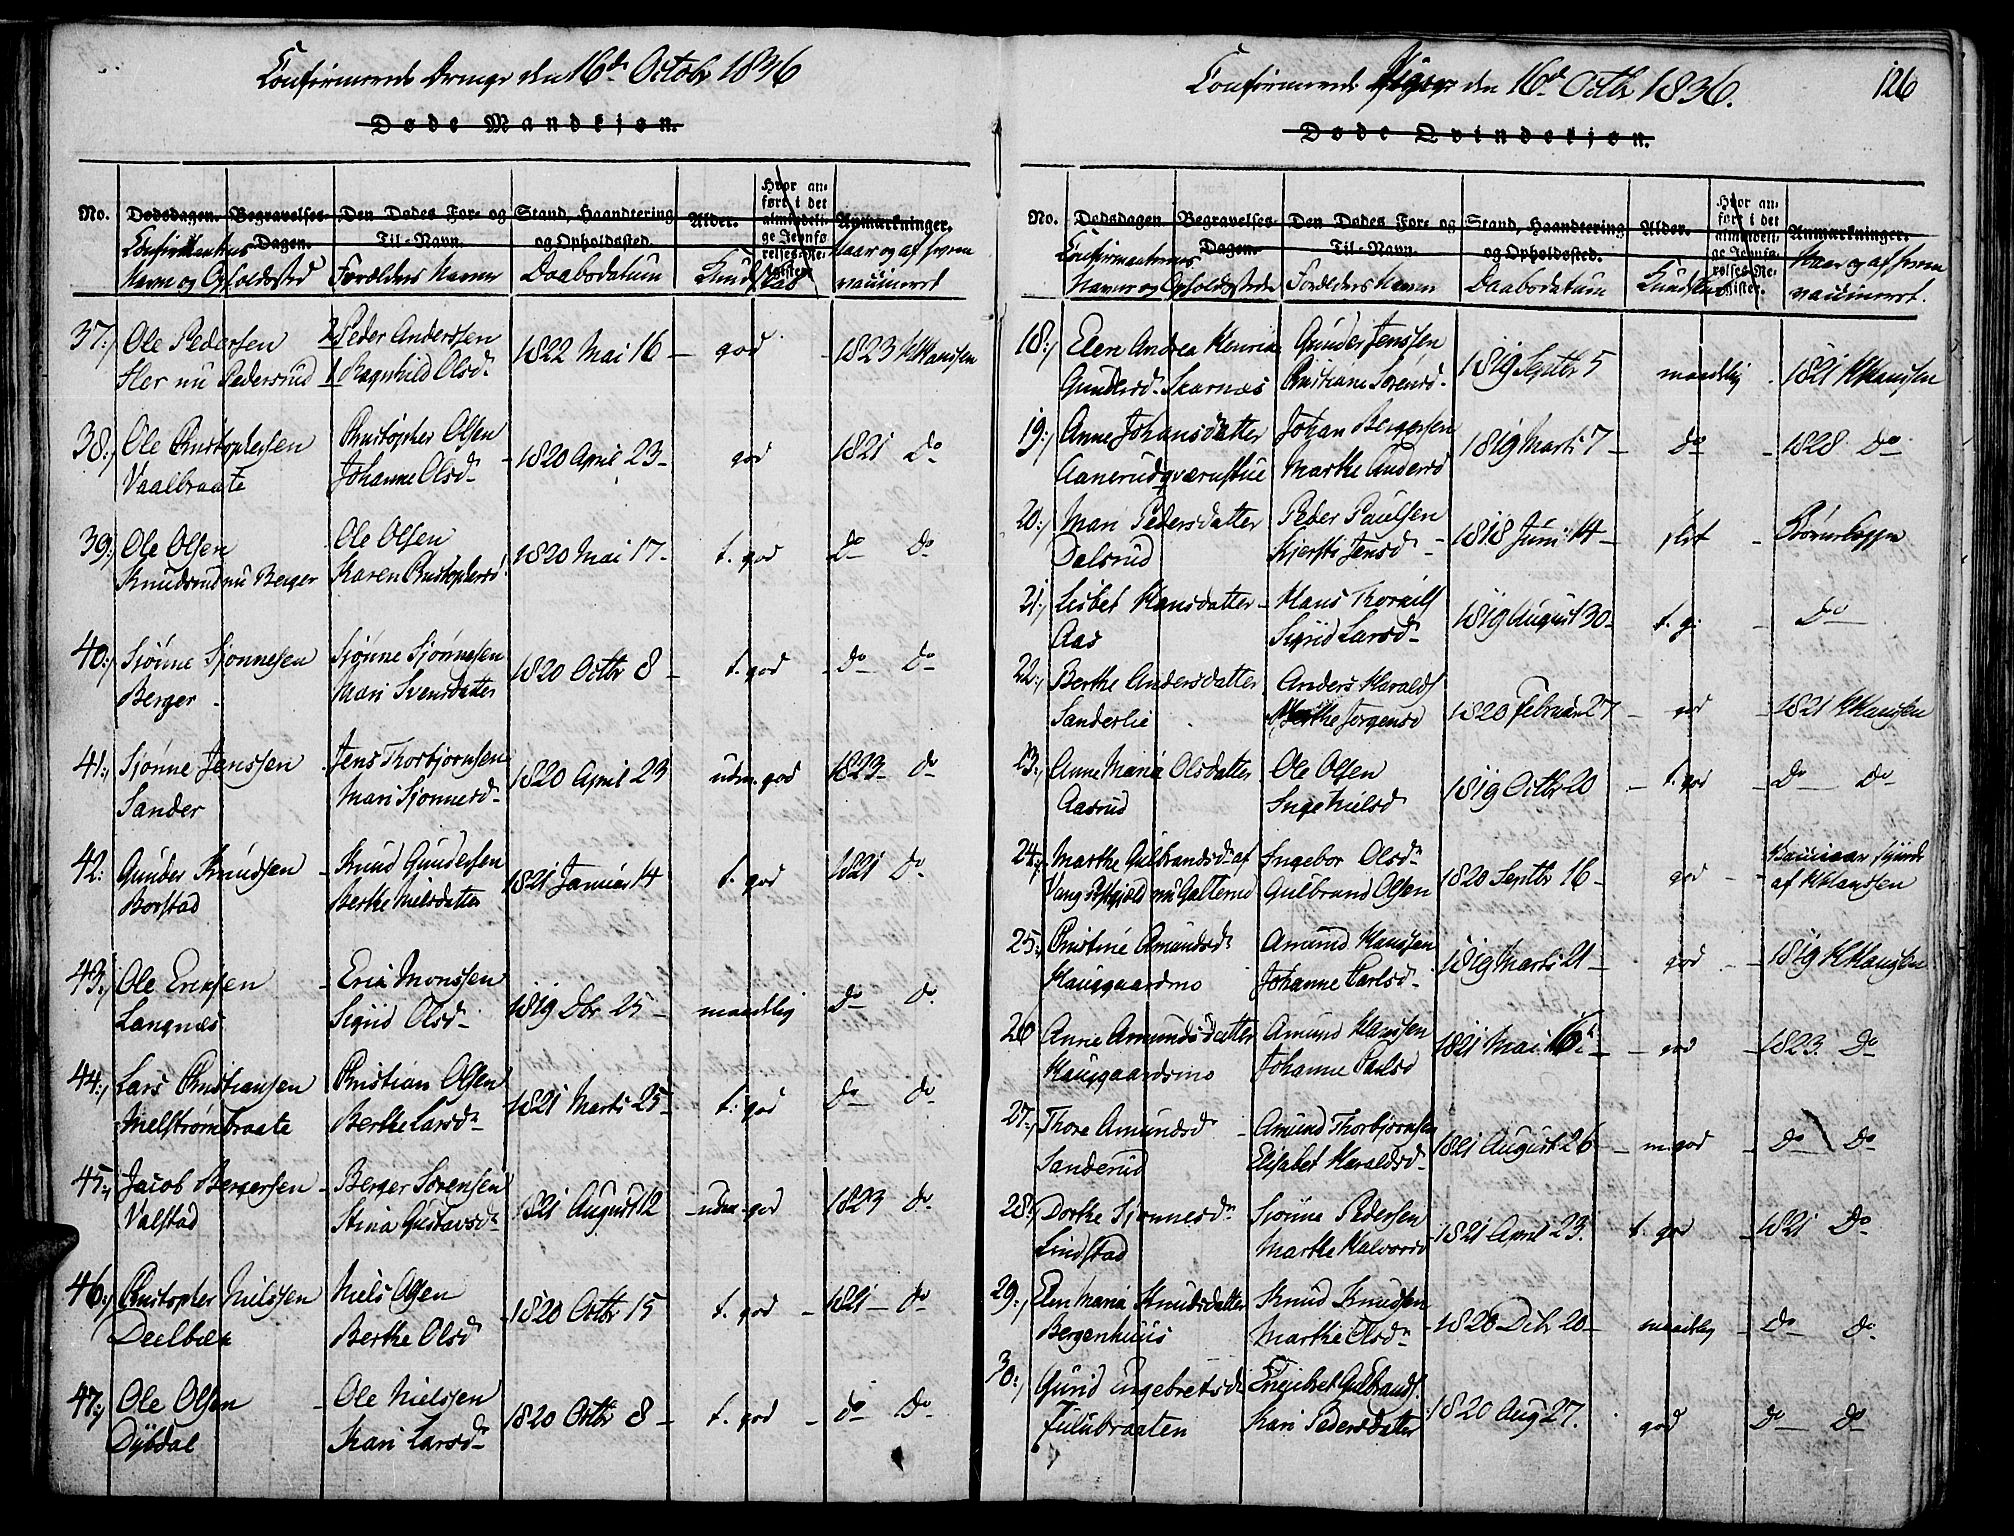 Confirmerede Drenge den 16de Octobr 1836
Døde Mandkjøn.
No. Dødsdagen. Begravelses- Dagen. Den Dødes For- og Til-Navn. Stand, Haandtering og Opholdssted. Alder. Hvor anført i det almindelige Jevnførelses-Register. Anmærkninger.
Navne og Opholdsted Forældres Navne Daabsdatum Kundskab Naar og af hvem vaccineret
37. Ole Pedersen 2 Peder Anderssen 1822 Mai 16 god 1823 H Hanssen
nu Pedersrud 1 Ragnhild Olsd.
38. Ole Christophersen Christopher Olsen 1820 April 23 god 1821 do
Vaalbraate Johanne Olsd
39. Ole Olsen Ole Olsen 1820 Mai 17 t. god do do
Knudsrud nu Berger Karen Christophersd
40. Sjønne Sjonnesen Sjønne Sjønnesen 1820 Octbr 8 t. god do do
Berger Mari Svensdatter
41. Sjønne Jenssen Jens Thorbjørnsen 1820 April 23 udm. god 1823 do
Sander Mari Sjonnesd
42. Gunder Knudsen Knud Gundersen 1821 Januar 14 t. god 1821 do
Borstad Berthe Nielsdatter
43. Ole Ericksen Eric Monssen 1819 Dbr 25 maadelig do do
Langnæs Sigrid Olsd
44. Lars Christiansen Christian Olsen 1821 Marts 25 t. god do do
Melstrømbraate Berthe Larsd
45. Jacob Bergersen Berger Sørensen 1821 August 12 udm. god 1823 do
Valstad Stina Gustavsd
46. Christopher Nielssen Niels Olsen 1820 Octbr 15 t. god 1821 do
Deelbæk Berthe Olsd
47. Ole Olsen Ole Nielssen 1820 Octbr 8 t. god do do
Dybdal Kari Larsd
Confirmerede Piger den 16de Octbr 1836.
126
Døde Qvindekjøn.
No. Dødsdagen Begravelses- Dagen. Den Dødes For- og Til-Navn. Stand, Haandtering og Opholdssted. Alder. Hvor anført i det almindelige Jevnførelses-Register. Anmærkninger.
Confirmanternes Navne og Opholdsstede Forældres Navne Daabsdatum Kundskab Naar og af hvem vaccineret.
18. Elen Andrea Gunder Jenssen 1819 Septbr 5 maadelig 1821 H Hanssen
Gundersd. Skarnæs Christiane Sørensd.
19. Anne Johansdatter Johan Bergersen 1819 Marts 7 do 1828 do
Aanerudqværnstue Marthe Andersd
20. Mari Pedersdatter Peder Paulsen 1818 Juni 14 slet Børnekopper
Dalsrud Kjersti Jensd
21. Lisbet Hansdatter Hans 1819 August 30 t. g. do
Aas Sigrid Larsd
22. Berthe Andersdatter Anders Haralds 1820 Februar 27 god 1821 H Hanssen
Sanderlie Jørgensd
23. Anne Maria Olsdatter Ole Olsen 1819 Octbr 20 t. god do do
Aasrud Inge Nielsd
24. Marthe Gulbrandsd af Ingebor Olsd 1820 Septbr 16 god
Vang nu Galterud Gulbrand Olsen af H Hanssen
25. Christine Amundsd Amund Hanssen 1819 Marts 21 god 1819 H Hanssen
Haugaardmo Johanne Carlsd
26 Anne Amundsdatter Amund Hanssen 1821 Mai 6 god 1823 do
Haugaardsmo Johanne Carlsd
27. Thore Amundsd Amund Thorbjørnsen 1821 August 26 m. god do do
Sanderud Elisabet Haraldsd
28. Dorthe Sjønnesd Sjønne Pedersen 1821 April 23. t. god 1821 do
Lindstad Marthe Halvorsd
29. Elen Maria Knudsdatter Knud Knudsen 1820 Dcbr 20 maadelig do do
Bergenhuus Marthe Olsd
30. Gurid Engebretsd Engebret Gulbrands. 1820 Aug 27. god do do
Julubraaten Kari Pedersdatter